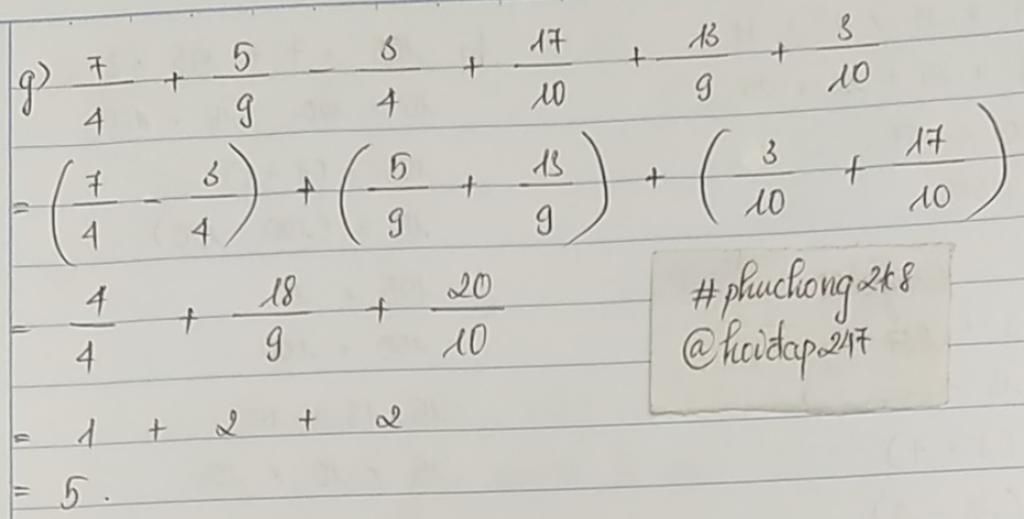 g) 7/4 + 5/9 - 3/4 + 17/10 + 13/9 + 3/10
= (7/4 - 3/4) + (5/9 + 13/9) + (3/10 + 17/10)
= 4/4 + 18/9 + 20/10
#phuchong2k8
@hoidap247
= 1 + 2 + 2
= 5.